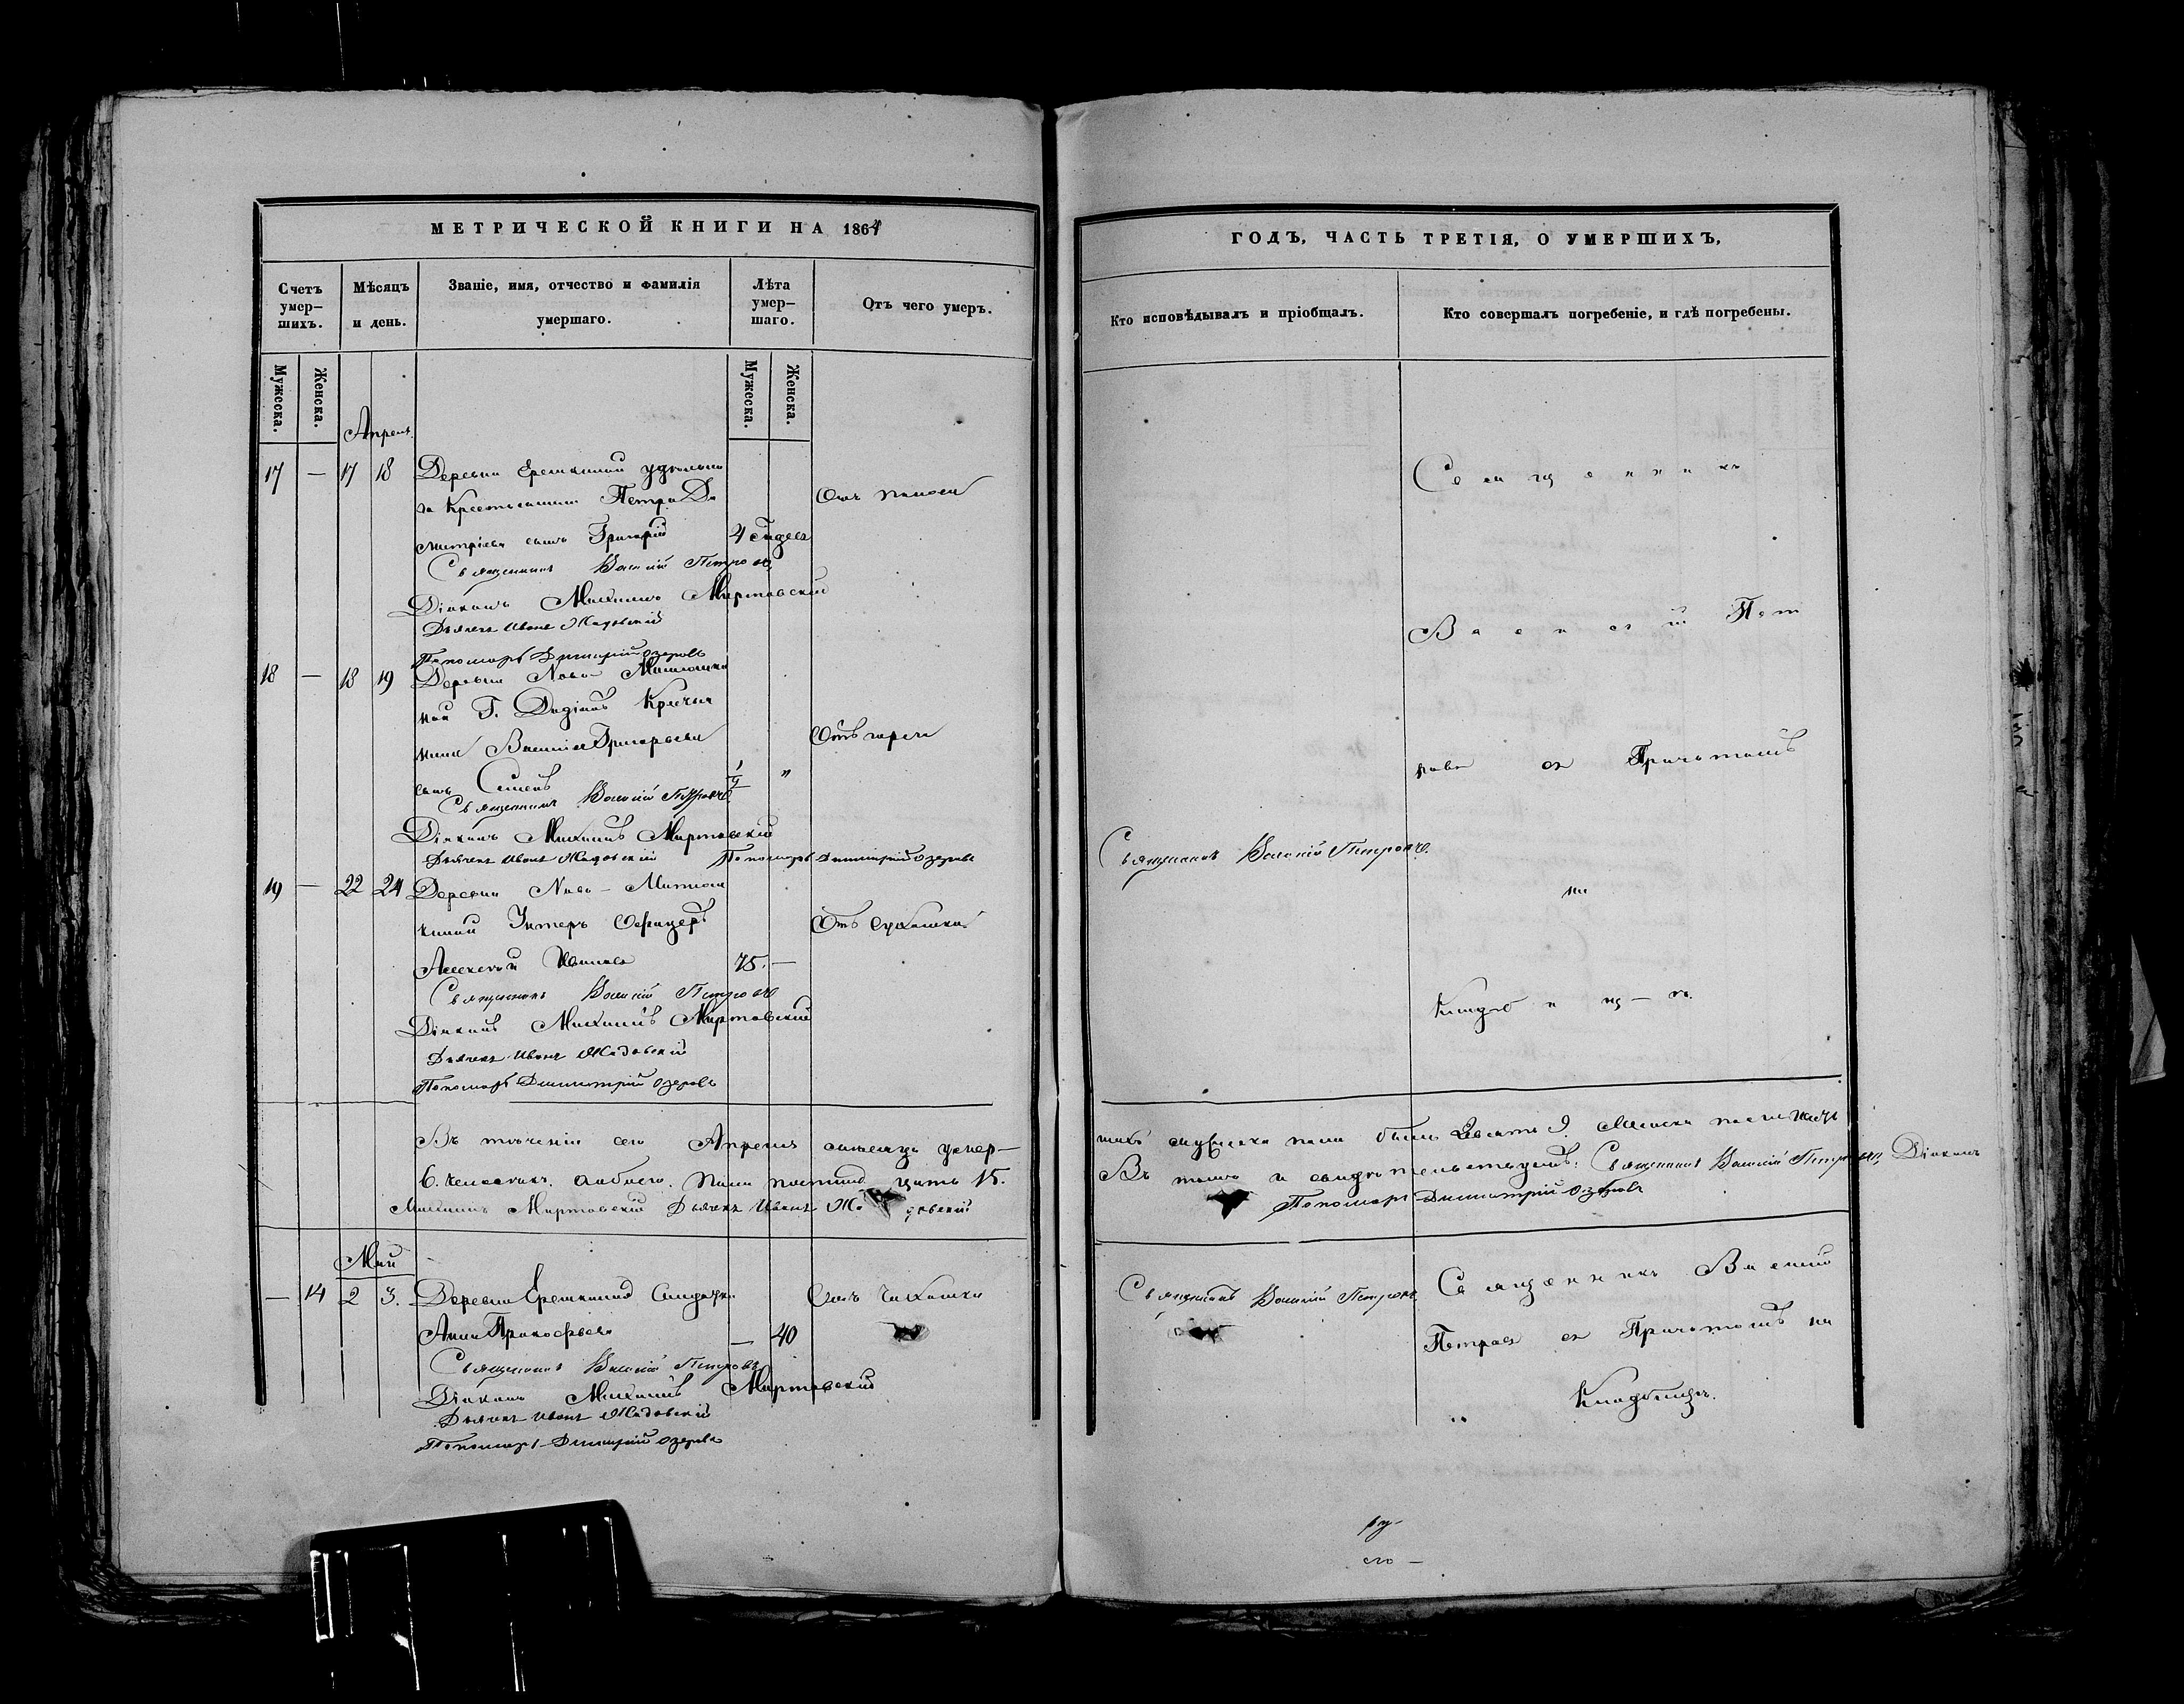 МЕТРИЧЕСКОЙ КНИГИ НА 1864
Счетъ умер-шихъ.
Мѣсяцъ и день.
Званіе, имя, отчество и фамилія умершаго.
Лѣта умер-шаго.
Отъ чего умеръ.
Мужеска.
Женска.
Мужеска.
Женска.
Апрель.
17 — 17 18 Деревни Ерешкиной удѣльна
го Крестьянина Петра Ди
митріева сынъ Григорій 4 годовъ
Священникъ Василій Петровъ
Діаконъ Михаилъ Миртовскій
Дьячекъ Иванъ Жадовскій
Пономарь Димитрій Озеровъ
18 — 18 19 Деревни Ново
ной Г. Крестья
нина Василія Григорьева
сынъ Семенъ "
Священникъ Василій Петровъ
Діаконъ Михаилъ Миртовскій
Дьячекъ Иванъ Жадовскій Пономарь Димитрій Озеровъ
19 — 22 24 Деревни Ново-
киной Унтеръ Офицеръ
Алексей Ивановъ 75. —
Священникъ Василій Петровъ
Діаконъ Михаилъ Миртовскій
Дьячекъ Иванъ Жадовскій
Пономарь Димитрій Озеровъ
Отъ поноса
Отъ горячки
Въ теченіи сего Апреля месяца умер-
6. человекъ. обоего пола пятнад цать 15.
Михаилъ Миртовскій Дьячекъ Иванъ Жа довскій
Май
— 14 2 3. Деревни Ерешкиной Солдатка
Анна Прокофьева — 40
Отъ чахотки
Священникъ Василій Петровъ
Діаконъ Михаилъ Миртовскій
Дьячекъ Иванъ Жадовскій
Пономарь Димитрій Озеровъ
ГОДЪ, ЧАСТЬ ТРЕТІЯ, О УМЕРШИХЪ,
Кто исповѣдывалъ и пріобщалъ.
Кто совершалъ погребеніе, и гдѣ погребены.
Священникъ
Василій Пет
ровъ съ Причтомъ
Священникъ Василій Петровъ.
на
Кладбищѣ.
шихъ мужеска пола было Девять 9. Женска пола шесть
Въ томъ и свидѣтельствуемъ: Священникъ Василій Петровъ, Діаконъ
Пономарь Димитрій Озеровъ
Священникъ Василій Петровъ
Священникъ Василій
Петровъ съ Причтомъ на
Кладбищѣ.
ру-
сло —